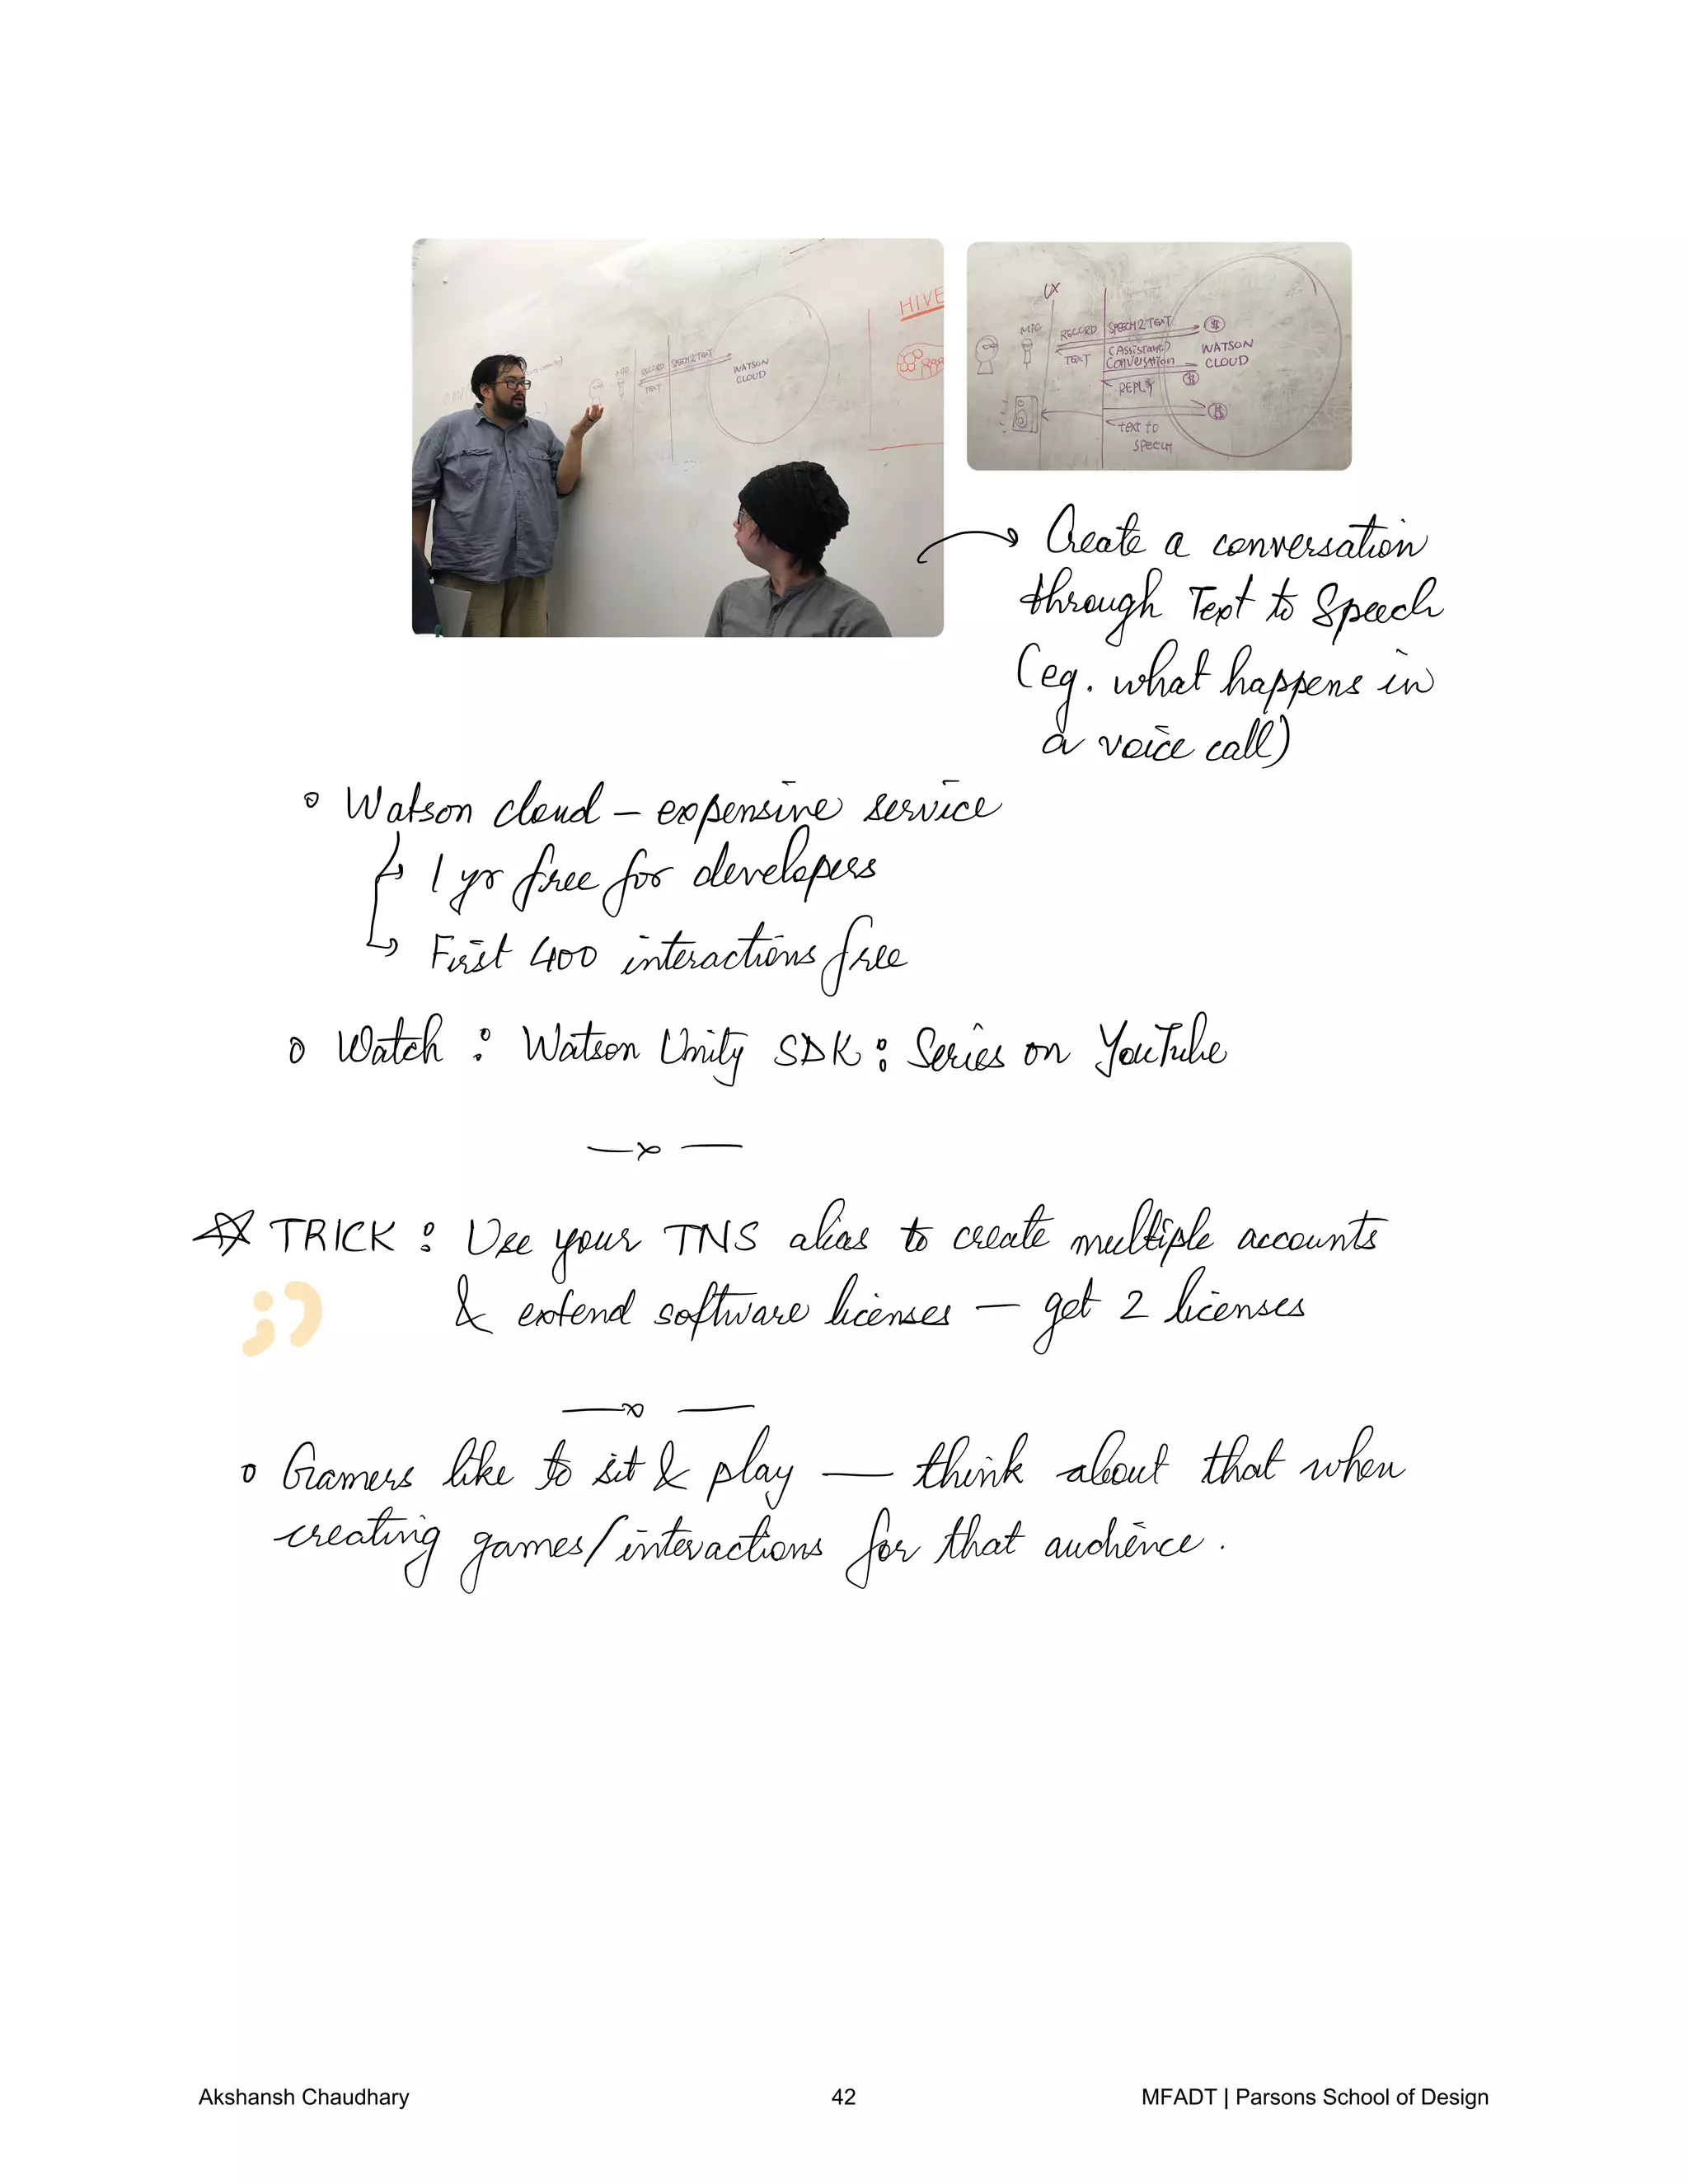 HIVE
MIC
RECORD
SPEECH2TEXT
TEXT
WATSON
CLOUD
UX
MIC
RECORD
SPEECH2TEXT
$
TEXT
(Assistant)
Conversation
WATSON
CLOUD
REPLY
$
$
text to
SPEECH
Create a conversation
through Text to Speech
(eg. what happens in
a voice call)
Watson cloud – expensive service
1 yr free for developers
First 400 interactions free
Watch : Watson Unity SDK : Series on YouTube
TRICK : Use your TNS alias to create multiple accounts
& extend software licenses — get 2 licenses
;)
Gamers like to sit & play — think about that when
creating games/interactions for that audience.
Akshansh Chaudhary 42 MFADT | Parsons School of Design